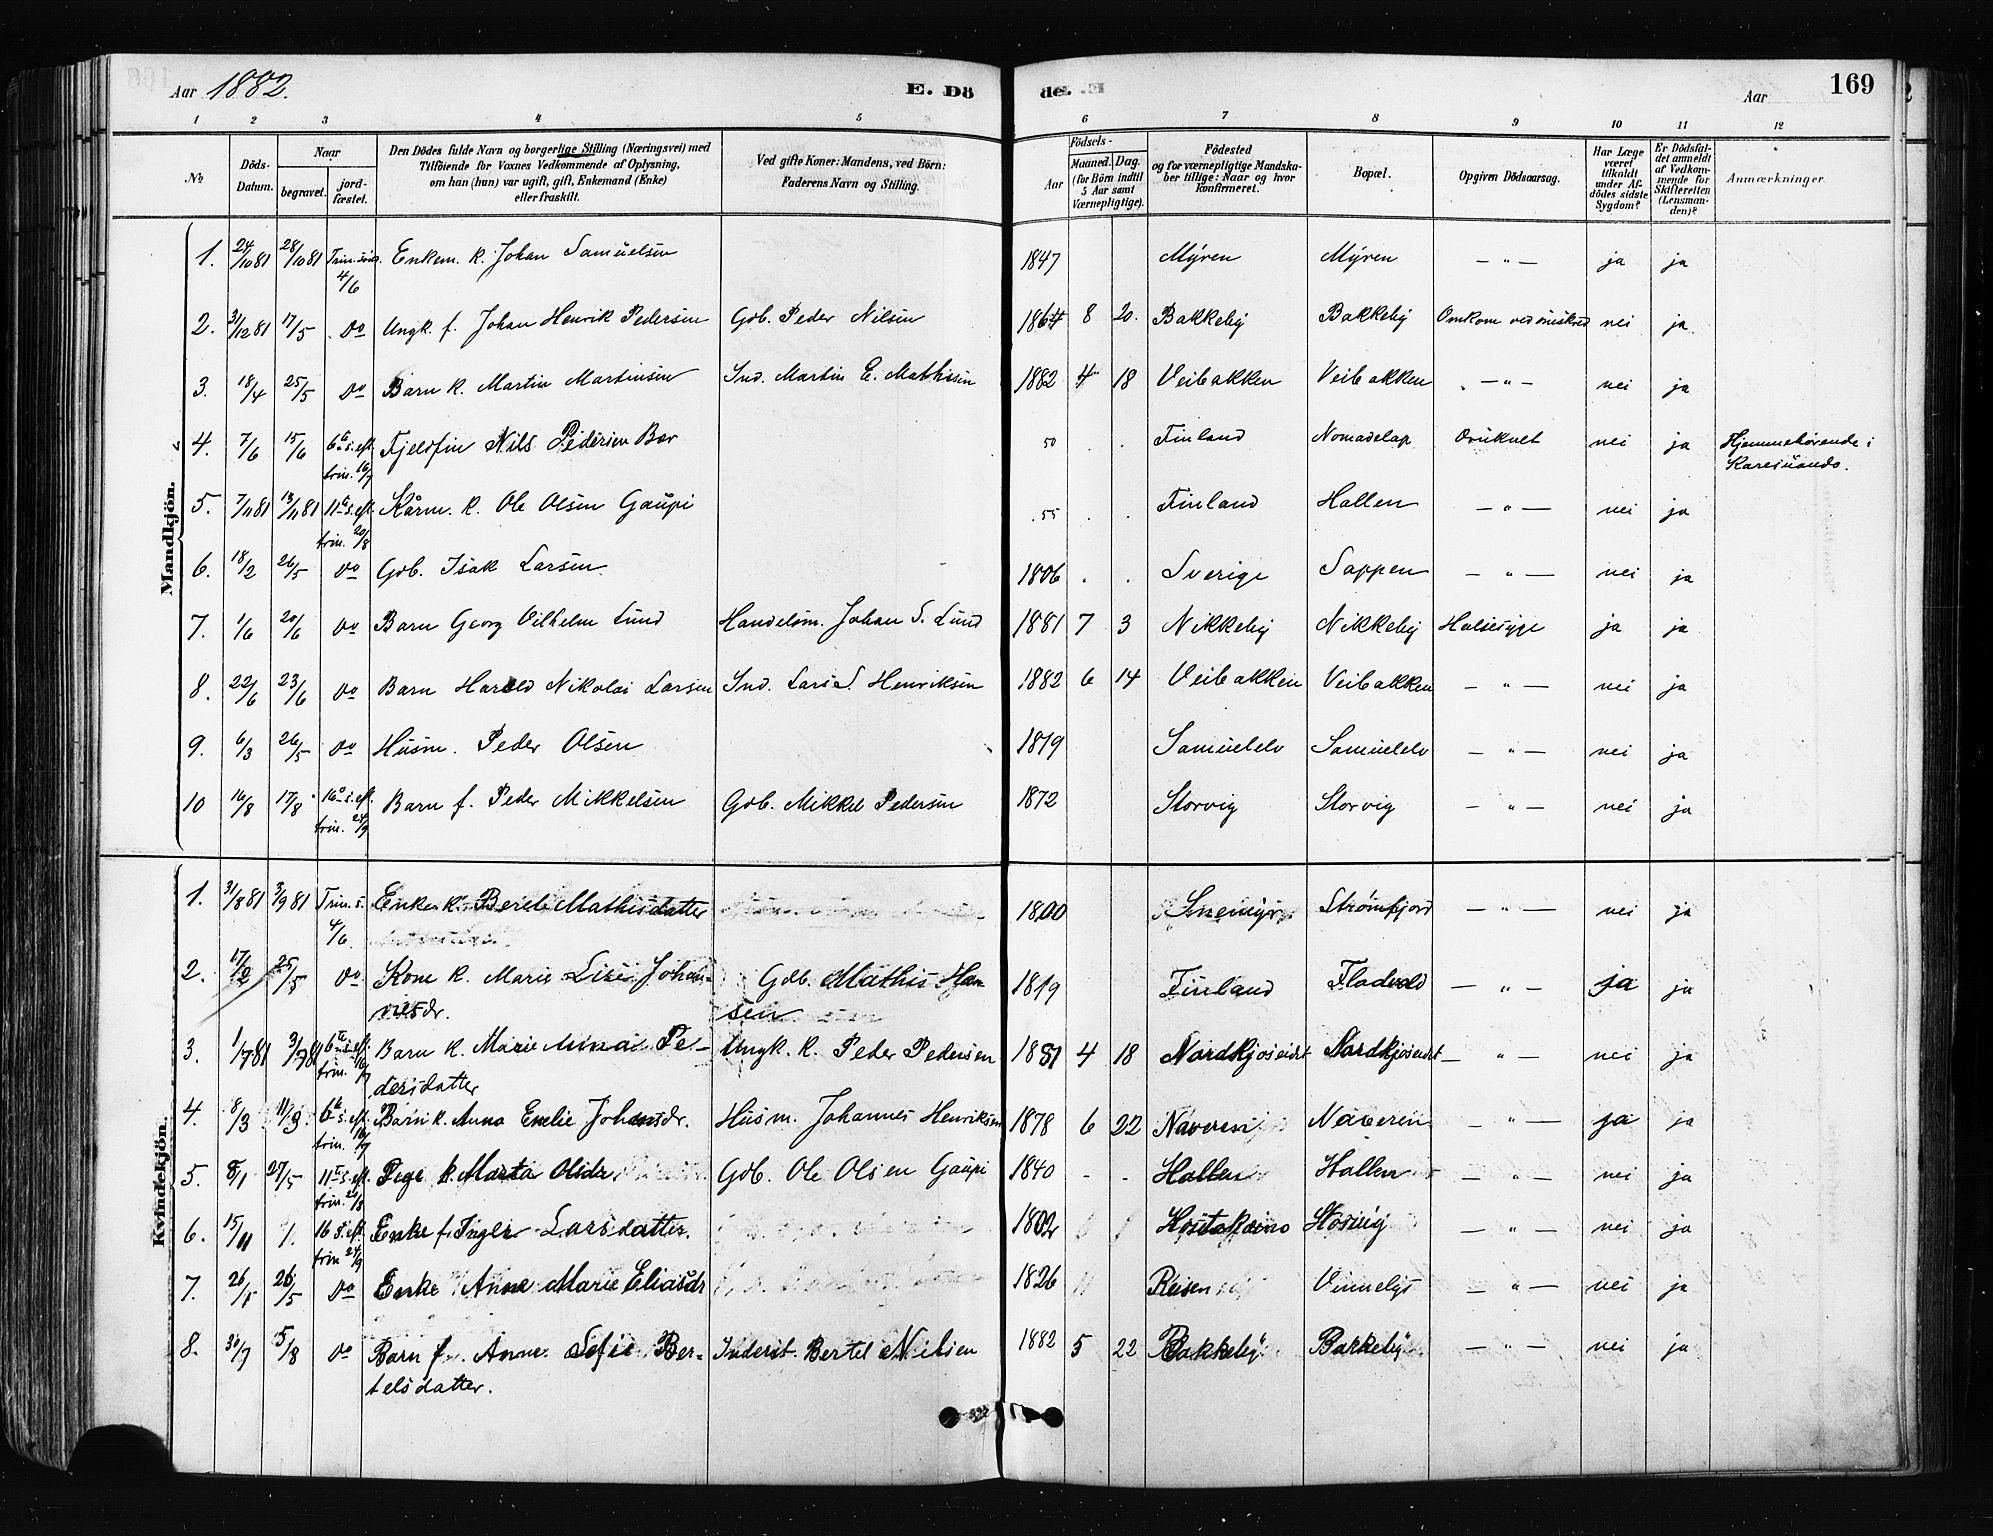 Aar 1882. E. Dö de. Aar 169
1 2 3 4 5 6 7 8 9 10 11 12
№ Döds-Datum. Naar begravet. jord-fæstet. Den Dödes fulde Navn og borgerlige Stilling (Næringsvei) med Tilföiende for Voxnes Vedkommende af Oplysning, om han (hun) var ugift, gift, Enkemand (Enke) eller fraskilt. Ved gifte Koner: Mandens, ved Börn: Faderens Navn og Stilling. Födsels- Aar Maaned. Dag. (for Börn indtil 5 Aar samt Værnepligtige). Födested og for værnepligtige Mandskaber tillige: Naar og hvor konfirmeret. Bopæl. Opgiven Dödsaarsag. Har Læge været tilkaldt under Afdödes sidste Sygdom? Er Dödsfaldet anmeldt af Vedkommende for Skifteretten (Lensmanden)? Anmærkninger.
Mandkjön.
1. 24/10 81 28/10 81 4/6 Enkem. k. Johan Samuelsen 1847 Myren Myren — " — ja ja
2. 31/12 81 17/5 do Ungk. f. Johan Henrik Pedersen Gdb. Peder Nilsen 1864 8 20. Bakkeby Bakkeby Omkom ved nei ja
3. 18/4 25/5 do Barn k. Martin Martinsen Ind. Martin E. Mathisen 1882 4 18 Veibakken Veibakken — " — nei ja
4. 7/6 15/6 6te s. eft. trin. 16/7 Fjeldfin Nils Pedersen Bær 50 Finland Nomadelap Druknet nei ja Hjemmehørende i Karesuando.
5. 7/11 81 13/11 81 11te s. eft. trin. 20/8 k. Ole Olsen Gaupi 55 Finland Hallen — " — nei ja
6. 18/2 26/5 do Gdb. Isak Larsen 1806 Sverige Sappen — " — nei ja
7. 1/6 20/6 do Barn Georg Vilhelm Lund Handelsm. Johan S. Lund 1881 7 3 Nikkeby Nikkeby Halsesyge ja ja
8. 22/6 23/6 do Barn Harald Nikolai Larsen Ind. Lars S. Henriksen 1882 6 14 Veibakken Veibakken — " — nei ja
9. 6/3 26/5 do Husm. Peder Olsen 1819 Samuelelv Samuelelv — " — nei ja
10 16/8 17/8 16de s. eft. trin. 24/9 Barn f. Peder Mikkelsen Gdb. Mikkel Pedersen 1872 Storvig Storvig — " — nei ja
Kvindekjön.
1. 31/8 81 3/9 81 Trin. s. 4/6. Enke k. Berit Mathisdatter 1800 Strømfjord — " — nei ja
2. 17/2 25/5 do Kone k. Marie Lise Johan-
nesdr. Gdb. Mathis Han
sen 1819 Finland Fladvold — " — ja ja
3. 1/7 81 3/7 81 6te s. eft. trin. 16/7 Barn k. Marie Anna Pe-
dersdatter Ungk. k. Peder Pedersen 1881 4 18 Nordkjoseidet Nordkjoseidet — " — nei ja
4. 8/3 11/3. 6te s. eft. trin. 16/7 Barn k. Anna Emelie Johansdr. Husm. Johannes Henriksen 1878 6 22 Naveren Naveren — " — ja ja
5. 8/1 27/5 11te s. eft. trin. 20/8 Pige k. Marta Olsdr. Gdb. Ole Olsen Gaupi 1840 Hallen Hallen — " — nei ja
6. 15/11 1. 16 s. eft. trin 24/9 Enke f. Inger Larsdatter. 1802 Storvig — " — nei ja
7. 26/1 26/5 do Enke Anne Marie Eliasdr 1826 Reisen — " — nei ja
8. 30/7 5/8 do Barn f. Anne Sofie Ber-
telsdatter. Inderst. Bertel Nilsen 1882 5 22 Bakkeby Bakkeby — " — nei ja